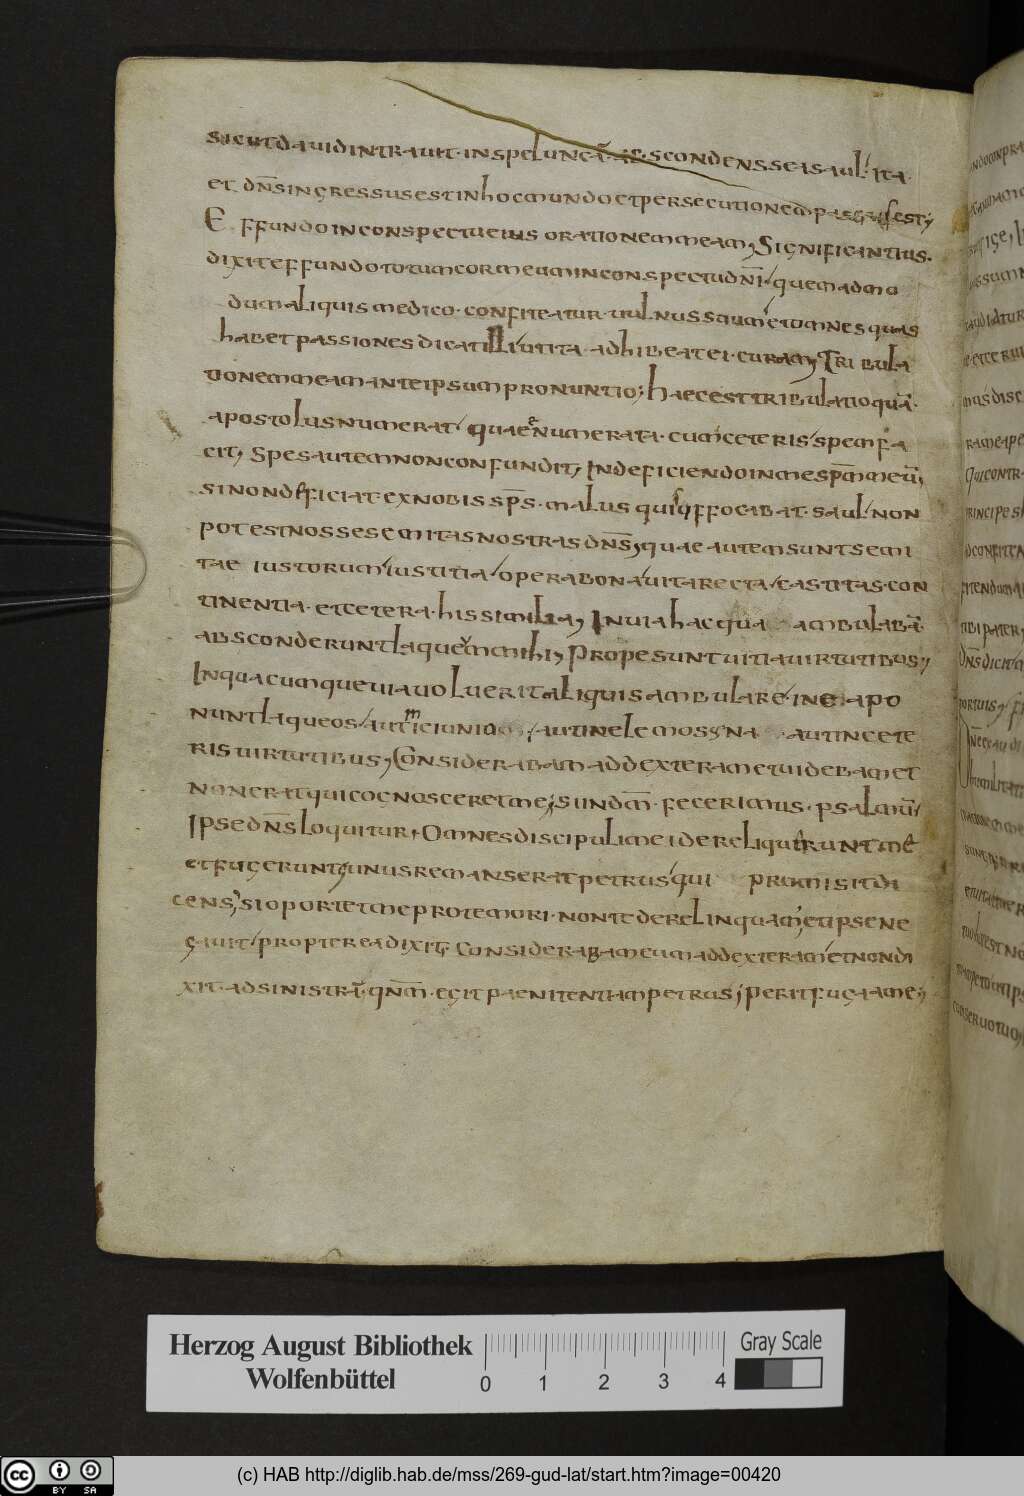 sicut dauid intrauit · in speluncā · abscondens se a saul / ita ·
et dn̄s ingressus est in hoc mundo et persecutionem passus est ;
Effundo in conspectu eius orationem meam ; Significantius ·
dixit effundo totum cor meum in conspectu dn̄i / quemadmo
dum aliquis medico · confiteatur · uulnus suum / et omnes quas
habet passiones dicat illi / ut ita adhibeat ei · curam ; Tribula
tionem meam ante ipsum pronuntio ; haec est tribulatio quā ·
apostolus numerat / quae enumerata · cum ceteris / spem fa
cit ; Spes autem non confundit ; In deficiendo in me sp̄m meū ;
si non deficiat ex nobis sp̄s · malus qui suffocabat · saul / non
potest nosse semitas nostras dn̄s ; quae autem sunt semi
tae iustorum / iustitia / opera bona / uita recta / castitas · con
tinentia · et cetera · his similia ; In uia hac qua ambulabā ·
absconderunt laqueum mihi ; prope sunt uitia uirtutibus ;
In quacumque uia uoluerit aliquis ambulare · in ea po
nunt laqueos / aut in ieiunio / aut in elemosyna aut in cete
ris uirtutibus ; Considerabam ad dexteram et uidebam et
non erat qui cognosceret me ; secundm̄ · fecerimus · psalmū /
Ipse dn̄s loquitur · Omnes discipuli mei dereliquerunt mē
et fugerunt ; unus remanserat petrus / qui promisit di
cens ; si oportet me pro te mori · non te derelinquam / et ipse ne
gauit / propterea dixit ; Considerabam eum ad dexteram / et non di
xit · ad sinistrā · qn̄m · egit paenitentiam petrus ; Perit fuga a me ;
Herzog August Bibliothek
Wolfenbüttel
0 1 2 3 4
Gray Scale
cc BY SA
(c) HAB http://diglib.hab.de/mss/269-gud-lat/start.htm?image=00420